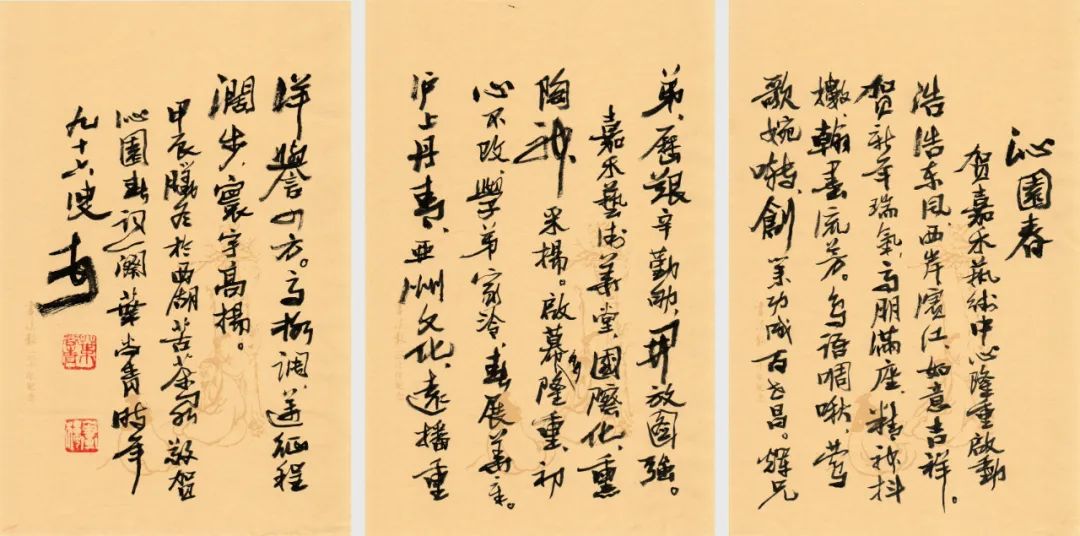 沁園春
贺嘉禾藝術中心隆重啟動
浩浩东风,西岸濱江,如意吉祥。
贺新年瑞氣,高朋满座,精神抖
擞,翰墨流芳。鸟语啁啾,莺
歌婉啭,創業功成百世昌。辉兄
弟,歷艱辛勤奋,開放图强。
嘉禾藝術華堂,國際化,熏
陶神采揚。啟幕多隆重,初
心不改,學弟家泠,喜展華章。
沪上丹青,亚州文化,遠播重
洋譽四方。高格调,迈征程
濶步,寰宇高揚。
甲辰臘冬於西湖苦茶敬贺
沁園春词一阕葉尚青時年
九十六叟 青